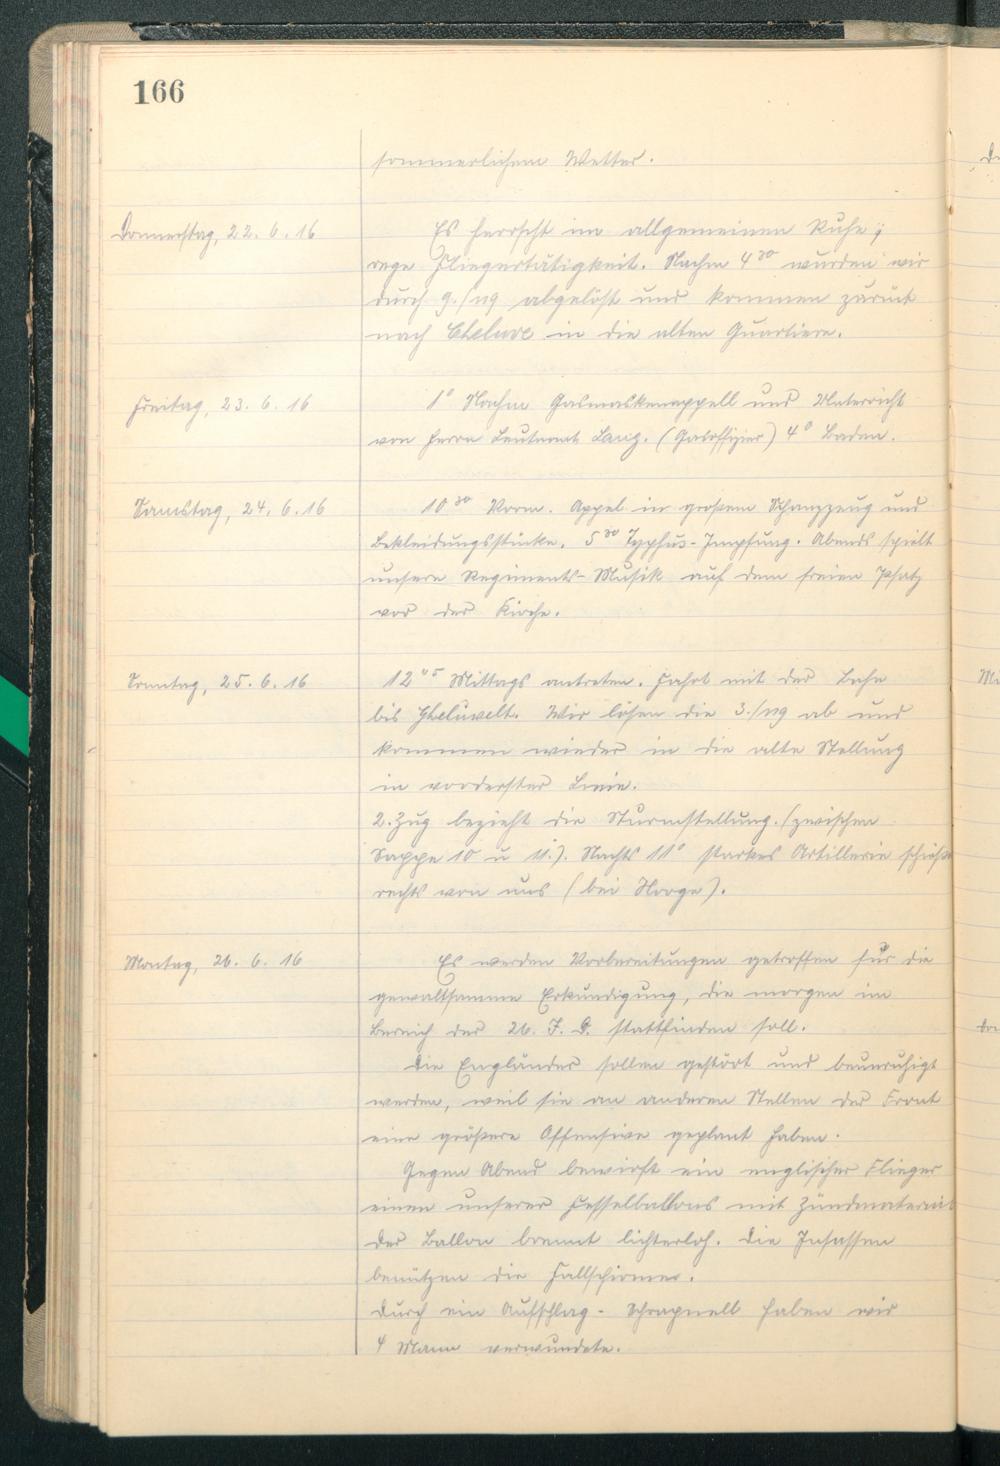 166
sommerlichem Wetter.
Donnerstag, 22. 6. 16
Es herrscht im allgemeinen Ruhe;
rege Fliegertätigkeit. Nachm 4³⁰ wurden wir
durch 9./119 abgelöst und kommen zurück
nach Cheluve in die alten Quartiere.
Freitag, 23. 6. 16
1⁰ Nachm Gasmaskenappell und Unterricht
von Herrn Leutnant Lang. (Gasoffizier) 4⁰ Baden.
Samstag, 24. 6. 16
10³⁰ Vorm. Appel in großem Schanzzeug und
Bekleidungsstücke. 5³⁰ Typhus-Impfung. Abends spielt
unsere Regiments-Musik auf dem freien Platz
vor der Kirche.
Sonntag, 25. 6. 16
12⁰⁵ Mittags antreten. Fahrt mit der Bahn
bis Gheluvelt. Wir lösen die 3./119 ab und
kommen wieder in die alte Stellung
in vorderster Linie.
2. Zug bezieht die Sturmstellung. (zwischen
Sappe 10 u 11.). Nachts 11⁰ starkes Artillerie
rechts von uns (bei Hooge).
Montag, 26. 6. 16
Es werden Vorbereitungen getroffen für die
gewaltsamme Erkundigung, die morgen im
Bereich der 26. I. D. stattfinden soll.
Die Engländer sollen gestört und beunruhigt
werden, weil sie an anderen Stellen der Front
eine größere Offensive geplant haben.
Gegen Abend bewirft ein englischer Flieger
einen unserer Fesselballons mit Zündmaterial
Der Ballon brennt lichterloh. Die Insassen
benützen die Fallschirmer.
Durch ein Aufschlag-Schrapnell haben wir
4 Mann verwundete.